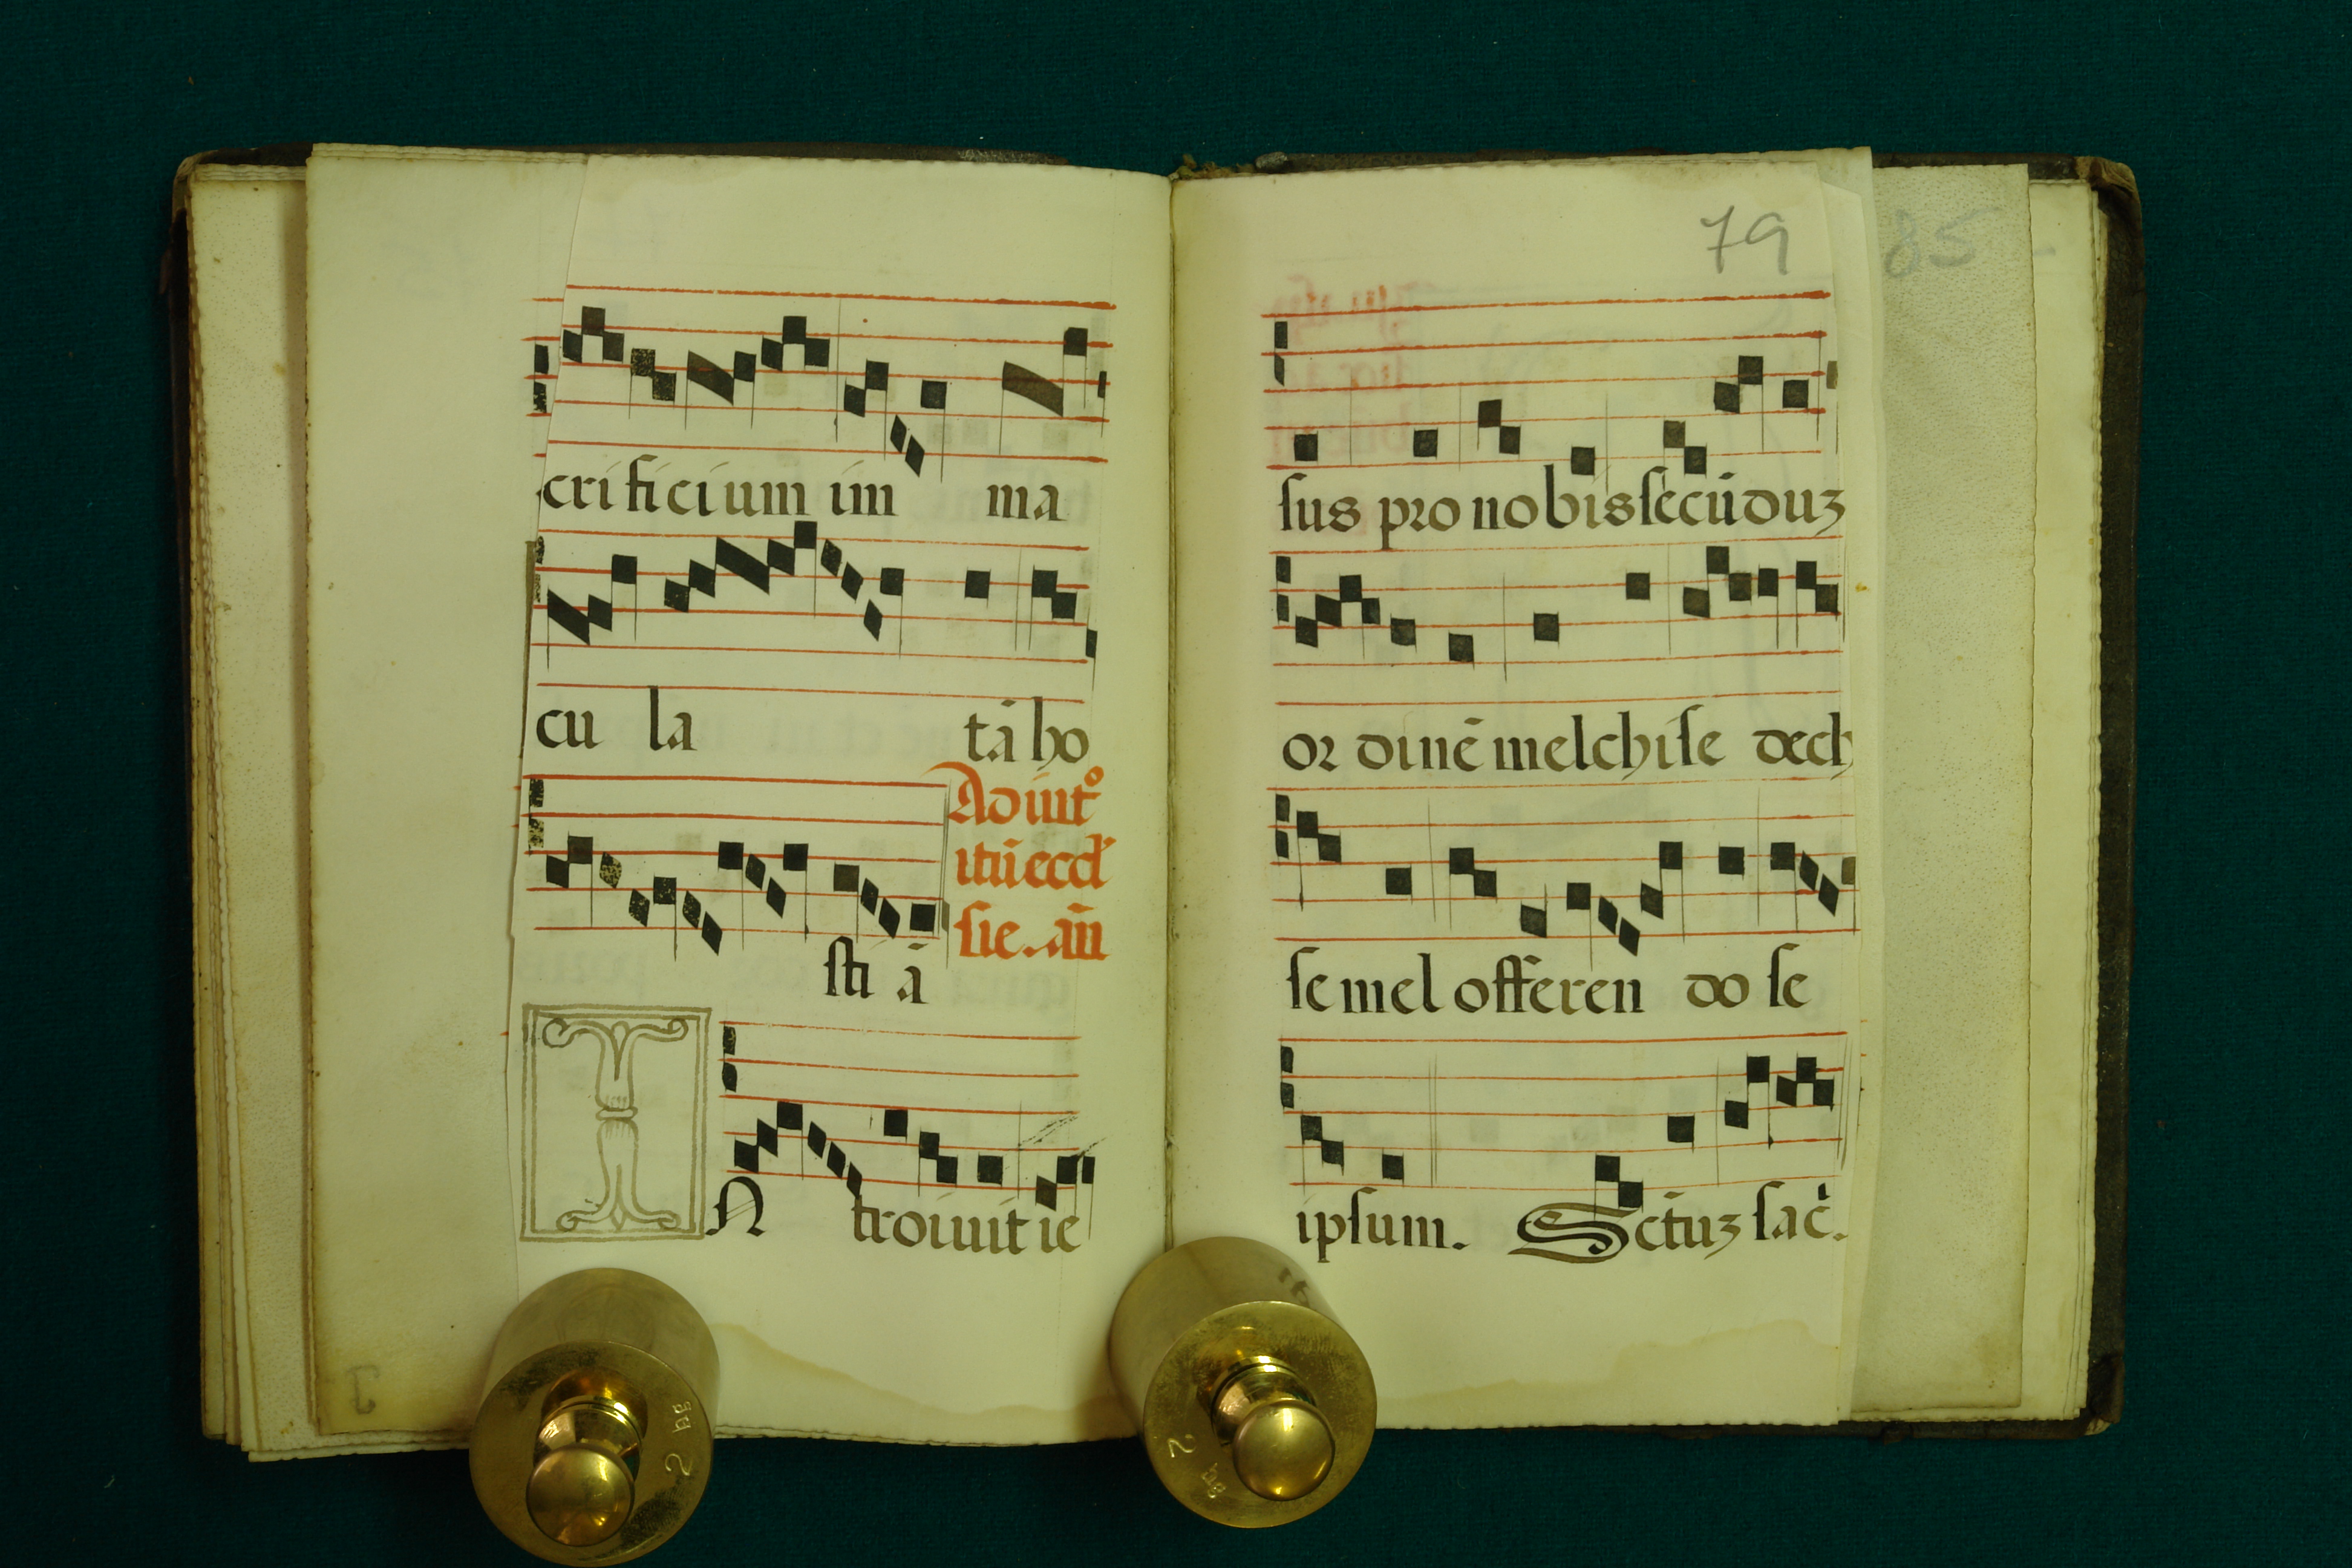 crificium im ma
cu la tā ho
Ad int°
itū eccl'
sie. añ
sti ā
IN troiuit ie
79
85
sus pro nobis secūduz
ordinē melchise dech
semel offeren do se
ipsum. Sctuz sac̄.
2 kg
2 kg